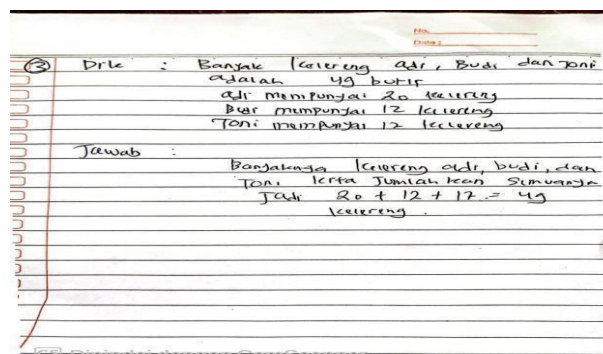 No.
Date :
③ Dik : Banyak kelereng adi, Budi dan Toni
adalah 49 butir
adi mempunyai 20 kelereng
Budi mempunyai 12 kelereng
Toni mempunyai 17 kelereng
Jawab :
Banyaknya kelereng adi, budi, dan
Toni kita Jumlah kan Semuanya
Jadi 20 + 12 + 17 = 49
kelereng.